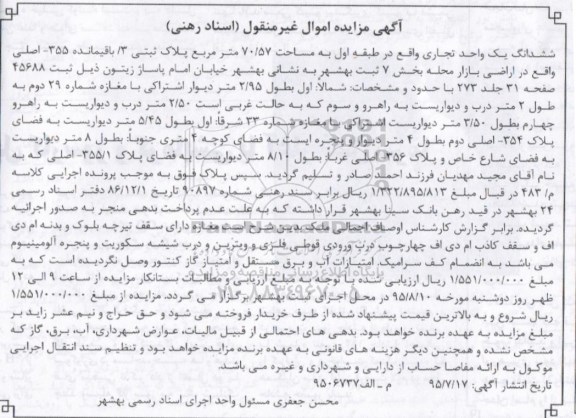 آگهی مزایده اموال غیرمنقول (اسناد رهنی)
ششدانگ یک واحد تجاری واقع در طبقه اول به مساحت ۷۰/۵۷ متر مربع پلاک ثبتی ۳/ باقیمانده ۳۵۵- اصلی
واقع در اراضی بازار محله بخش ۷ ثبت بهشهر به نشانی بهشهر خیابان امام پاساژ زیتون ذیل ثبت ۴۵۶۸۸
صفحه ۳۱ جلد ۲۷۳ با حدود و مشخصات: شمالا: اول بطول ۲/۹۵ متر دیوار اشتراکی با مغازه شماره ۲۹ دوم به
طول ۲ متر درب و دیواریست به راهرو و سوم که به حالت غربی است ۲/۵۰ متر درب و دیواریست به راهرو
چهارم بطول ۳/۵۰ متر دیواریست اشتراکی بنا مغازه شماره ۳۳ شرقا: اول بطول ۵/۴۵ متر دیواریست به فضای
پلاک ۳۵۴- اصلی دوم بطول ۴ متر دیوار و پنجره ایست به فضای کوچه ۴ متری جنوبا: بطول ۸ متر دیواریست
به فضای شارع خاص و پلاک ۳۵۶- اصلی غربا: بطول ۸/۱۰ متر دیواریست به فضای پلاک ۳۵۵/۱- اصلی که به
نام آقای مجید مهدیان فرزند احمد صادر و تسلیم گردید. سپس پلاک فوق به موجب پرونده اجرایی کلاسه
م/ ۴۸۳ در قبال مبلغ ۱/۳۲۲/۸۹۵/۸۱۳ ریال برابر سند رهنی شماره ۹۰۸۹۷ تاریخ ۸۶/۱۲/۱ دفتر اسناد رسمی
۲۴ بهشهر در قید رهن بانک سینا بهشهر قرار داشته که به علت عدم پرداخت بدهی منجر به صدور اجرائیه
گردیده. برابر گزارش کارشناس اوصاف اجمالی ملک بدین شرح است مغازه دارای سقف تیرچه بلوک و بدنه ام دی
اف و سقف کاذب ام دی اف چهارچوب درب ورودی قوطی فلزی و ویترین و درب شیشه سکوریت و پنجره آلومینیوم
می باشد به انضمام کف سرامیک. امتیازات آب و برق مستقل و امتیاز گاز کنتور وصل نگردیده است که به
مبلغ ۱/۵۵۱/۰۰۰/۰۰۰ ریال ارزیابی شده با توجه به مبلغ ارزیابی و مطالبات بستانکار مزایده از ساعت ۹ الی ۱۲
ظهر روز دوشنبه مورخه ۹۵/۸/۱۰ در محل اجرای ثبت بهشهر برگزار می گردد. مزایده از مبلغ ۱/۵۵۱/۰۰۰/۰۰۰
ریال شروع و به بالاترین قیمت پیشنهاد شده از طرف خریدار فروخته می شود و حق حراج و نیم عشر زاید بر
مبلغ مزایده به عهده برنده خواهد بود. بدهی های احتمالی از قبیل مالیات، عوارض شهرداری، آب، برق، گاز که
مشخص نشده و همچنین دیگر هزینه های قانونی به عهده برنده مزایده خواهد بود و تنظیم سند انتقال اجرایی
موکول به ارائه مفاصا حساب از دارایی و شهرداری و غیره می باشد.
تاریخ انتشار آگهی: ۹۵/۷/۱۷ م ـ الف:۹۵۰۶۷۳۷
محسن جعفری مسئول واحد اجرای اسناد رسمی بهشهر